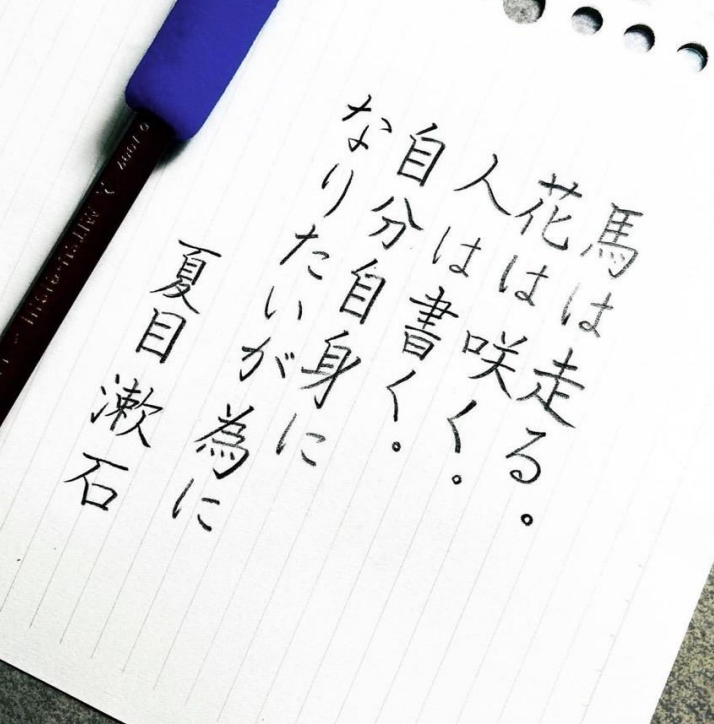 馬は走る。
花は咲く。
人は書く。
自分自身に
なりたいが為に
夏目漱石